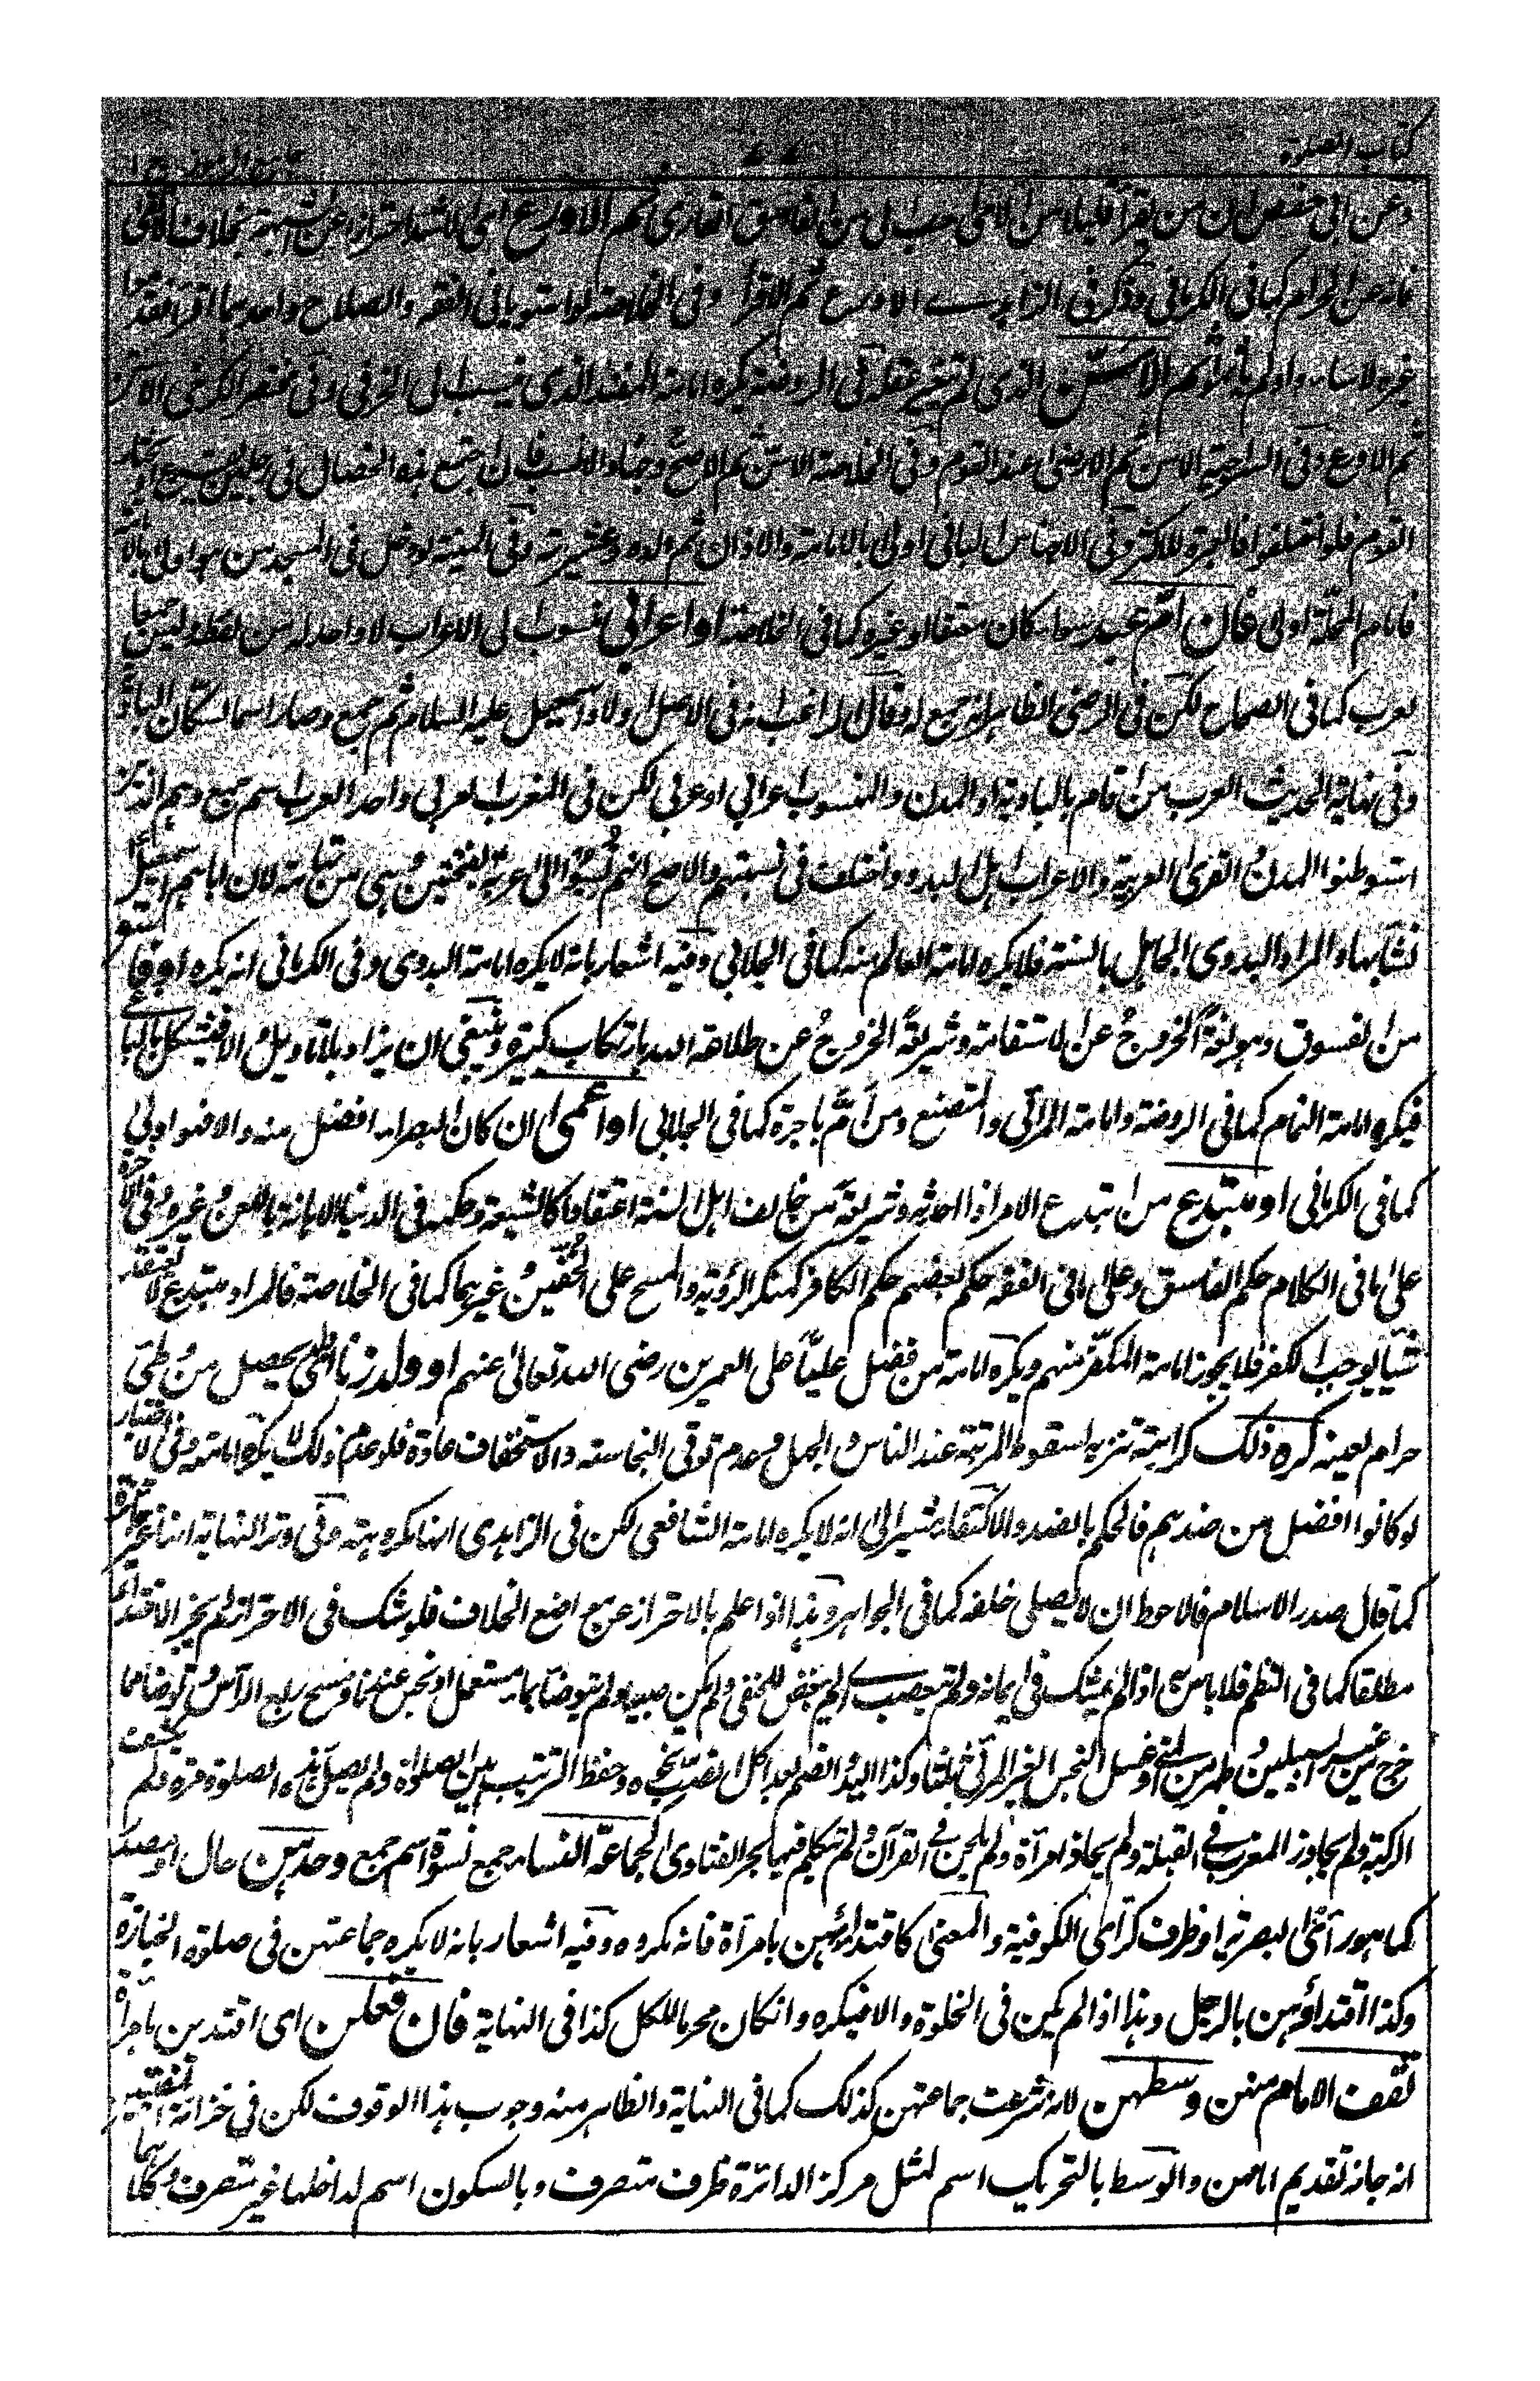 كتاب الصلوة
وعن ابى حفص ان من يقرأ قليلا من احب الى من الفاسق القارى ثم الاورع اى الاشد احترازا عن الشبهة بخلاف الاتقى
فانه عن الحرام كما فى الكرمانى وذكر فى الزاهدى الاورع ثم الاقرأ وفى الخلاصة لو استويا فى الفقه والصلاح واحدهما اقرأ فقدموا
غيره لاساؤا ولم ياثموا ثم الاسن الذى فى الروضة يكره امامة الذى ينسب الى وفى مختصر الكرخى الاسن
ثم الاورع وفى السراجية الاسن ثم الارضى عند القوم وفى الخلاصة الاسن ثم الاصبح وجها والانسب فان اجتمع هذه الخصال فى رجلين يقرع او يختار
القوم فلو اختلفوا فالعبرة للاكثر وفى الاجناس البانى اولى بالامامة والاذان ثم ولده وعشيرته وفى المنية لو دخل فى المسجد من هو اولى بالامامة
فامام المحلة اولى فان ام عبد سواء كان معتقا او غيره كما فى الخلاصة او اعرابى منسوب الى الاعراب لا واحد له من لفظه وليس جمعا
لعرب كما فى الصحاح لكن فى الرضى الظاهر انه جمع اذ قال ان اعراب فى الاصل اولاد اسمعيل عليه السلام ثم جمع وصار اسما لسكان البادية
وفى نهاية الحديث العرب من اقام بالبادية او المدن والمنسوب اعرابى او عربى لكن فى المغرب العربى واحد العرب اسم جمع وهم الذين
استوطنوا المدن والقرى العربية والاعراب اهل البدو واختلف فى نسبتهم والاصح انهم نسبوا الى عربة بفتحتين وهى من تهامة لان اباهم اسمعيل
نشأ بها والمراد البدوى الجاهل بالسنة فلا يكره امامة العالم منه كما فى الجلابى وفيه اشعار بانه لا يكره امامة البدوى وفى الكرمانى انه يكره او فاسق
من الفسوق وهو لغة الخروج عن الاستقامة وشريعة الخروج عن طاعة الله بارتكاب كبيرة وينبغى ان يزاد بلا تاويل والا فيشكل بالباغى
فيكره امامة النمام كما فى الروضة وامامة المرائى والمتصنع ومن ام باجرة كما فى الجلابى او اعمى ان كان البصراء افضل منه والا فهو اولى
كما فى الكرمانى او مبتدع من ابتدع الامر اذا احدثه وشريعة من خالف اهل السنة اعتقادا كالشيعة وحكمه فى الدنيا الاهانة باللعن وغيره وفى الآخرة
على ما فى الكلام حكم الفاسق وعلى ما فى الفقه حكم بعضهم حكم الكافر كمنكر الرؤية والمسح على الخفين وغيرهما كما فى الخلاصة فالمراد مبتدع لا يعتقد
شيئا يوجب الكفر فلا يجوز امامة المكفر منهم ويكره امامة من فضل عليا على العمرين رضى الله تعالى عنهم او ولد زنا اى يحصل من وطى
حرام لعينه كره ذلك كراهة تنزيه لسقوط المرتبة عند الناس والجهل وعدم توقى النجاسة والاستخفاف عادة فلو عدم ذلك لا يكره امامته وفى الاختيار
لو كانوا افضل من ضدهم فالحكم بالضد والاكتفاء مشير الى انه لا يكره امامة الشافعى لكن فى الزاهدى انها مكروهة وفى وتر النهاية انها غير جائزة
كما قال صدر الاسلام فالاحوط ان لا يصلى خلفه كما فى الجواهر وهذا اذا علم بالاحتراز عن مواضع الخلاف فلو شك فى الاحتراز لم يجز الاقتداء
مطلقا كما فى النظم فلا باس به اذا لم يشك فى ايمانه ولم يتعصب اى لم يبغض للحنفى ولم يكن ولم يتوضأ بماء مستعمل او نجس عندنا ومسح ربع الرأس وتوضأ مما
خرج من غير السبيلين وطهر من المنى وغسل النجس الغير المرئى ثلثا وحفظ الترتيب بين الصلواة ولم يصل هذه الصلوة مرة ولم يكشف
الركبة ولم يجاوز المغرب فى القبلة ولم يحاذ امرأة ولم يلحن فى القرآن ولم يتكلم فيها كجماعة النساء جمع نسوة اسم جمع وحدهن حال او مصدر
كما هو رأى البصرية او ظرف كرأى الكوفية والمعنى كاقتدائهن بامرأة فانه مكروه وفيه اشعار بانه لا يكره جماعتهن فى صلوة الجنازة
وكذا اقتداؤهن بالرجل وهذا اذا لم يكن فى الخلوة والا فيكره وانكان محرما للكل كذا فى النهاية فان فعلن اى اقتدين بامرأة
تقف الامام منهن وسطهن لانه شرعت جماعتهن كذلك كما فى النهاية والظاهر منه وجوب هذا الوقوف لكن فى خزانة المفتيين
انه جاز تقديم امامهن والوسط بالتحريك اسم لمثل مركز الدائرة ظرف متصرف وبالسكون اسم لداخلها غير متصرف وكلاهما